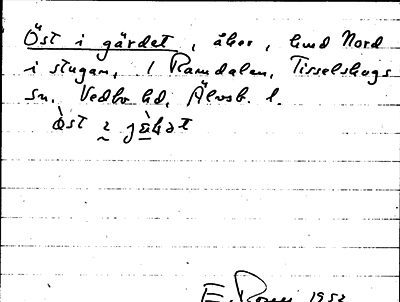 Öst i gärdet, åker, hmd Nord
i stugan, / Ramdalen, Tisselskogs
sn. Vedbo hd, Älvsb. l.
öst i
1952